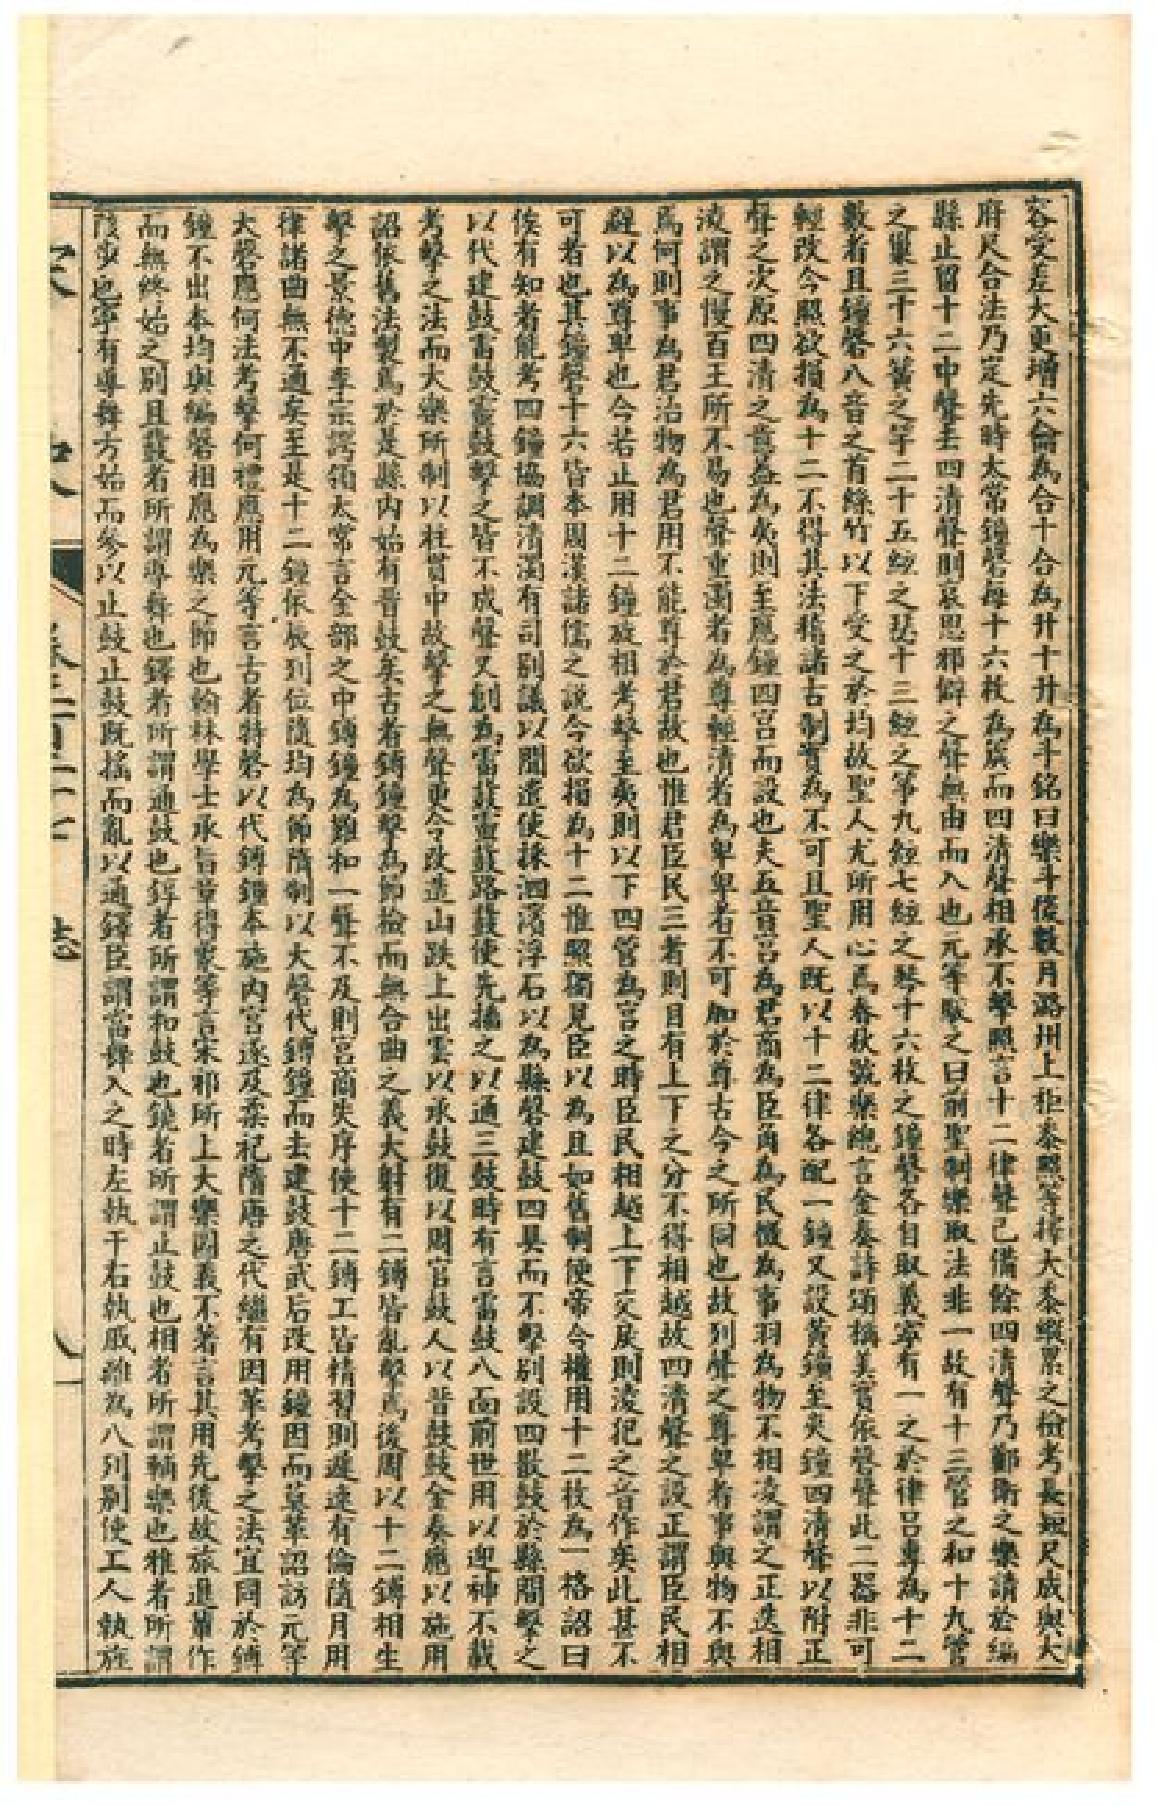 容受差大更增六龠為合十合為升十升為斗銘曰樂斗後數月潞州上秬黍照等擇大黍縱累之檢考長短尺成與大
府尺合法乃定先時太常鐘磬每十六枚為簴而四清聲相承不擊照言十二律聲已備餘四清聲乃鄭衛之樂請於編
縣止留十二中聲去四清聲則哀思邪僻之聲無由而入也元等駁之曰前聖制樂取法非一故有十三管之和十九管
之巢三十六簧之竽二十五絃之瑟十三絃之箏九絃七絃之琴十六枚之鐘磬各自取義寧有一之於律呂專為十二
數者且鐘磬八音之首絲竹以下受之於均故聖人尤所用心焉春秋號樂總言金奏詩頌稱美實依磬聲此二器非可
輕改今照欲損為十二不得其法稽諸古制實為不可且聖人既以十二律各配一鐘又設黃鐘至夾鐘四清聲以附正
聲之次原四清之意蓋為夷則至應鐘四宮而設也夫五音宮為君商為臣角為民徵為事羽為物不相凌謂之正迭相
凌謂之慢百王所不易也聲重濁者為尊輕清者為卑卑者不可加於尊古今之所同也故列聲之尊卑者事與物不與
焉何則事為君治物為君用不能尊於君故也惟君臣民三者則自有上下之分不得相越故四清聲之設正謂臣民相
避以為尊卑也今若止用十二鐘旋相考擊至夷則以下四管為宮之時臣民相越上下交戾則凌犯之音作矣此甚不
可者也其鐘磬十六皆本周漢諸儒之說今欲損為十二惟照獨見臣以為且如舊制便帝令權用十二枚為一格詔曰
俟有知者能考四鐘協調清濁有司別議以聞遣使採泗濱浮石以為縣磬建鼓四具而不擊別設四散鼓於縣間擊之
以代建鼓雷鼓靈鼓擊之皆不成聲又創為雷鼗靈鼗路鼗使先播之以通三鼓時有言雷鼓八面前世用以迎神不載
考擊之法而大樂所制以柱貫中故擊之無聲更令改造山趺上出雲以承鼓復以周官鼓人以晉鼓鼓金奏應以施用
詔依舊法製焉於是縣內始有晉鼓矣古者鎛鐘擊為節檢而無合曲之義大射有二鎛皆亂擊焉後周以十二鎛相生
擊之景德中李宗諤領太常言全部之中鎛鐘為難和一聲不及則宮商失序使十二鎛工皆精習則遲速有倫隨月用
律諸曲無不通矣至是十二鐘依辰列位隨均為節隋制以大磬代鎛鐘而去建鼓唐武后改用鐘因而莫革詔訪元等
大磬應何法考擊何禮應用元等言古者特磬以代鎛鐘本施內宮遂及柔祀隋唐之代繼有因革考擊之法宜同於鎛
鐘不出本均與編磬相應為樂之節也翰林學士承旨章得象等言宋祁所上大樂圖義不著言其用先後故旅進輩作
而無終始之別且鼗者所謂導舞也鐸者所謂通鼓也錞者所謂和鼓也鐃者所謂止鼓也相者所謂輔樂也雅者所謂
陔步也寧有導舞方始而參以止鼓止鼓既搖而亂以通鐸臣謂當舞入之時左執干右執戚離為八列別使工人執旌
志